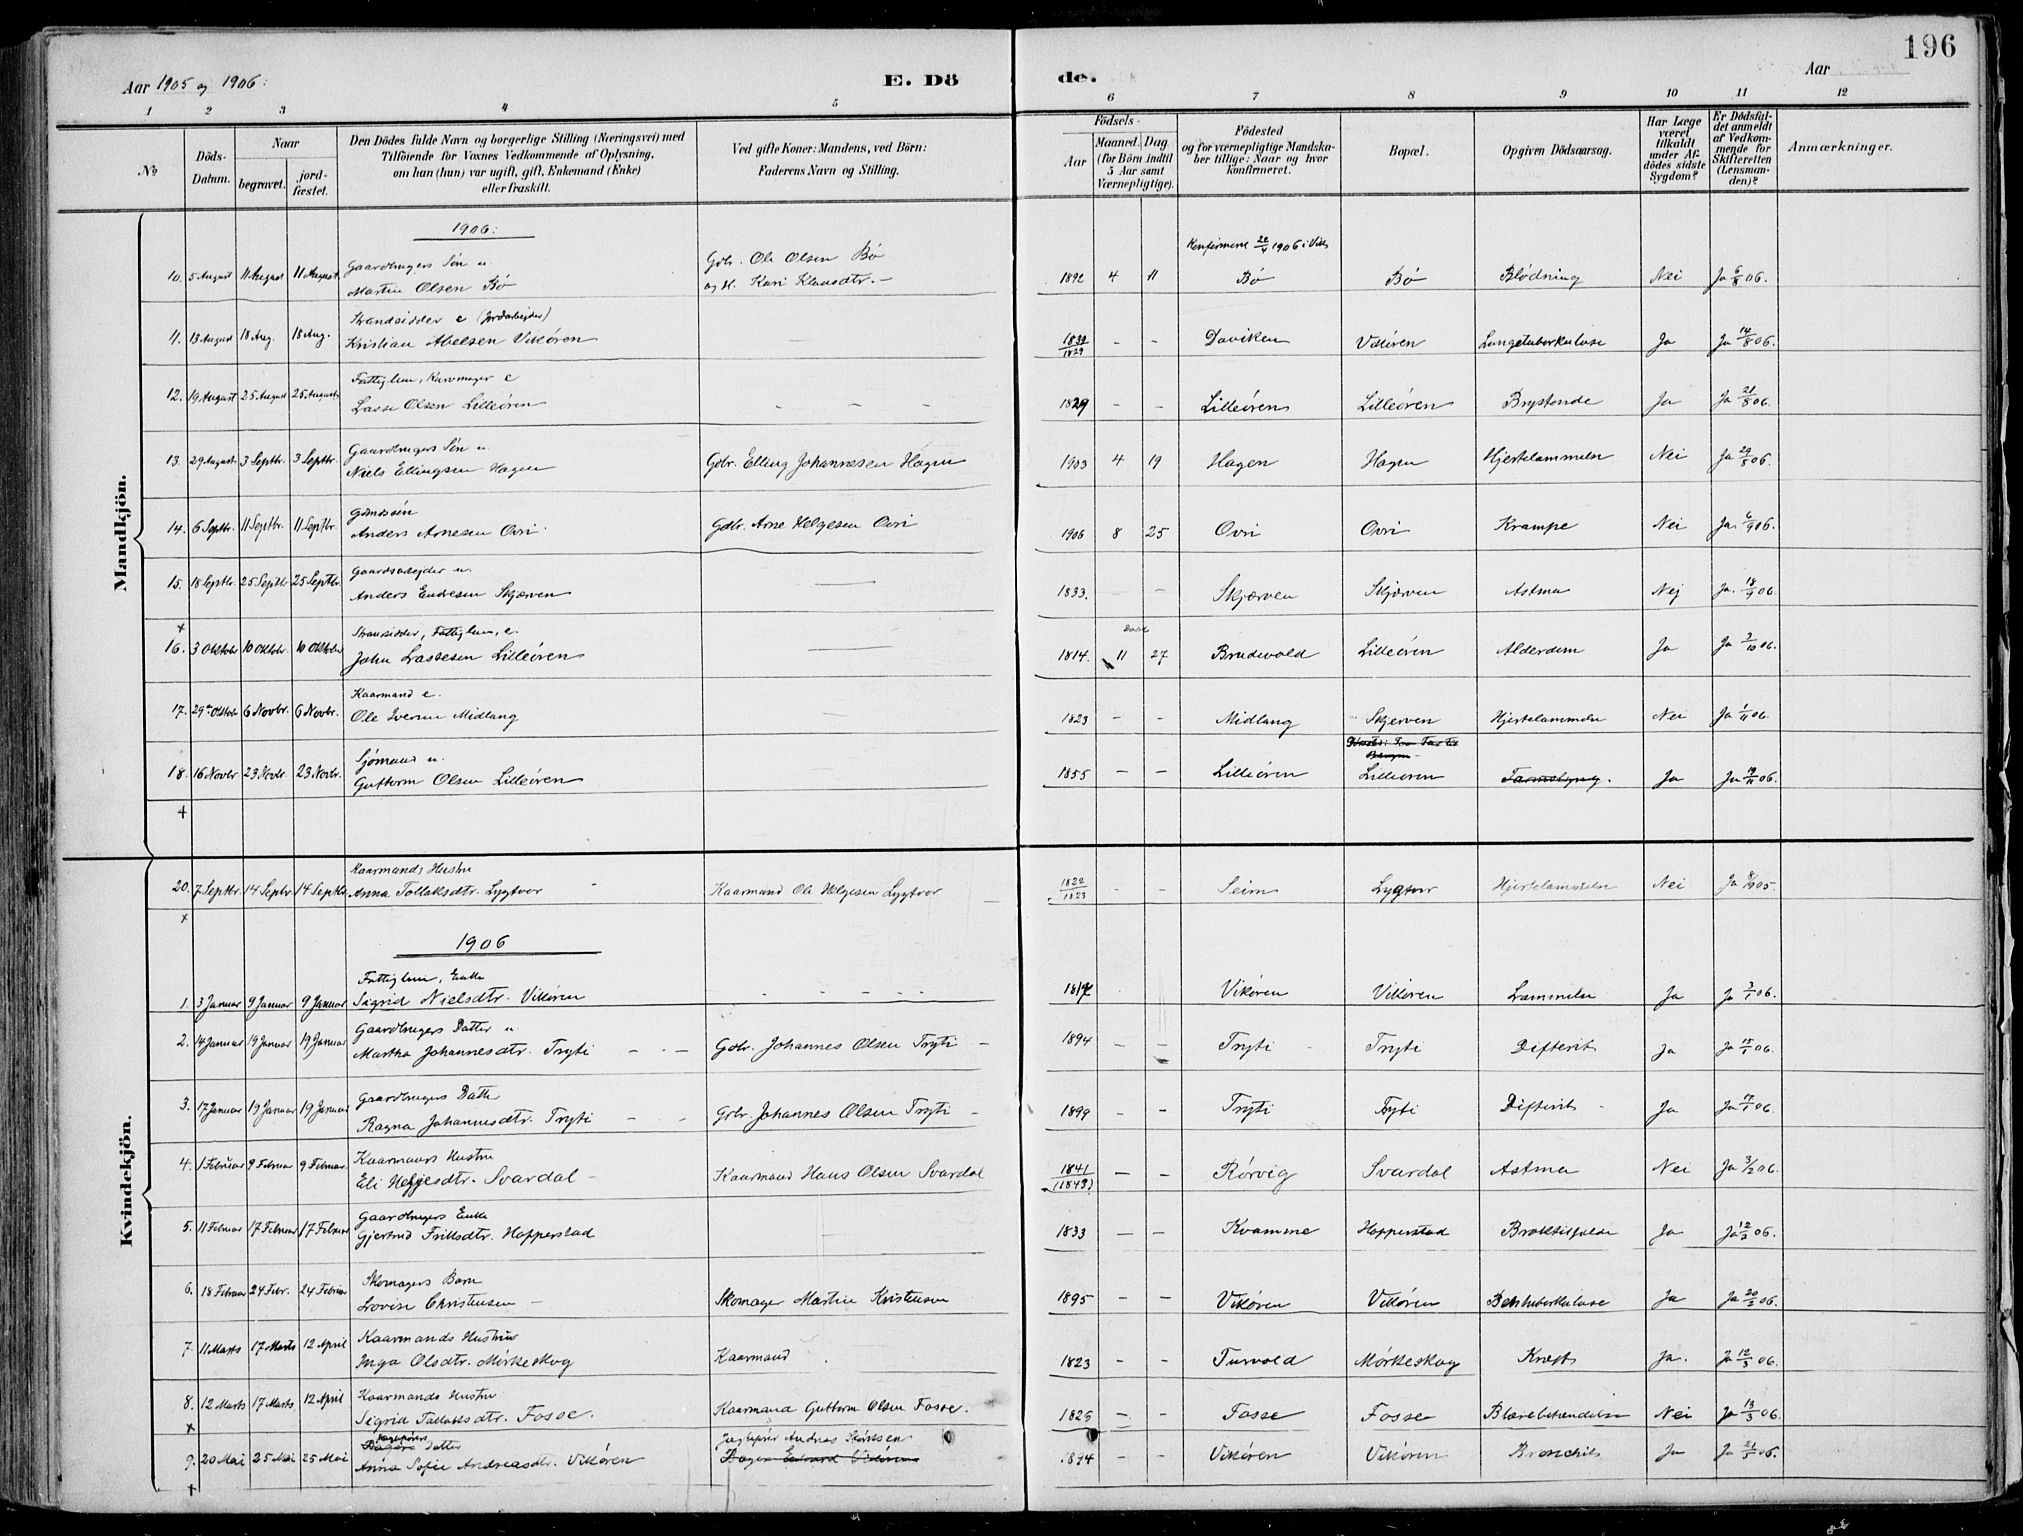 196
Aar 1905 og 1906:
E. Dö
de.
Aar
1 2 3 4 5 6 7 8 9 10 11 12
No
Döds-Datum.
Naar
begravet.
jord-fæstet.
Den Dödes fulde Navn og borgerlige Stilling (Næringsvei) med
Tilföiende for Voxnes Vedkommende af Oplysning,
om han (hun) var ugift, gift, Enkemand (Enke)
eller fraskilt.
Ved gifte Koner: Mandens, ved Börn:
Faderens Navn og Stilling.
Födsels-
Aar
Maaned. Dag.
(for Börn indtil
5 Aar samt
Værnepligtige).
Födested
og for værnepligtige Mandska-
ber tillige: Naar og hvor
konfirmeret.
Bopæl.
Opgiven Dödsaarsag.
Har Læge
været
tilkaldt
under Af-
dödes sidste
Sygdom?
Er Dödsfal-
det anmeldt
af Vedkom-
mende for
Skifteretten
(Lensman-
den)?
Anmærkninger.
Mandkjön.
1906:
Gaardbrugers Søn u. Gdbr. Ole Olsen Bø Konfirmeret 22/4 1906 i Vik
10. 5 August 11 August 11 August Martin Olsen Bø og H. Kari Klausdtr. - 1892 4 11 Bø Bø Blödning Nei Ja 6/8 06.
Strandsidder e (Jordarbeider)
11. 13 August 18 Aug. 18 Aug. Kristian Abelsen Vikøren — 1832 1829 - - Daviken Vikøren Lungetuberkulose Ja Ja 14/8 06.
Fattiglem, Kurvmager e
12. 19 August 25 August 25 August Lasse Olsen Lilleøren - - - 1829 - - Lilleøren Lilleøren Brystonde Ja Ja 21/8 06.
Gaardbrugers Søn u
13. 29 August 3 Septbr. 3 Septbr. Niels Ellingsen Hagen Gdbr. Elling Johannesen Hagen 1903 4 19 Hagen Hagen Hjertelammelse Nei Ja 29/8 06.
Gaardssøn
14. 6 Septbr. 11 Septbr. 11 Septbr. Anders Arnesen Ovri Gdbr. Arne Helgesen Ovri 1906 8 25 Ovri Ovri Krampe Nei Ja 6/9 06.
Gaardsarbejder u.
15. 18 Septbr. 25 Septbr 25 Septbr. Anders Endresen Skjærven — 1833. - - Skjærven Skjærven Astma Nej Ja. 18/9 06.
x Strandsidder, Fattiglem, e. Døbt
16. 3 Oktober 10 Oktobr. 10 Oktober John Lassesen Lilleøren — 1814. 11 27 Brudevold Lilleøren Alderdom Ja Ja 3/10 06.
Kaarmand e.
17. 29de Oktobr 6 Novbr. 6 Novbr. Ole Iversen Midlang — 1823 - - Midlang Skjerven Hjertelammelse Nei Ja 1/11 06.
Sjømand u.
18. 16 Novbr 23 Novbr. 23 Novbr. Guttorm Olsen Lilleøren — 1855 - - Lilleøren Lilleøren Tarmslyng. Ja Ja 19/11 06.
+
Kvindekjön.
Kaarmands Hustru
20. 7 Septbr. 14 Septbr. 14 Septbr Anna Tollaksdtr. Lygtvor Kaarmand Ole Helgesen Lygtvor 1822 1823 Seim Lygtvor Hjertelammelse Nei Ja 8/9 05.
x
1906
Fattiglem, Enke
1. 3 Januar 9 Januar 9 Januar Sigrid Nielsdtr. Vikøren - - - - - Vikøren Vikøren Lammelse Ja Ja 3/1 06.
Gaardbrugers Datter u.
2. 14 Januar 19 Januar 19 Januar Martha Johannesdtr. Tryti Gdbr. Johannes Olsen Tryti 1894 - - Tryti Tryti Difterit Ja Ja 15/1 06.
Gaardbrugers Datter
3. 17 Januar 19 Januar 19 Januar Ragna Johannesdtr. Tryti Gdbr. Johannes Olsen Tryti 1899 - - Tryti Tryti Difterit Ja Ja 17/1 06.
Kaarmans Hustru
4. 1 Februar 9 Februar 9 Februar. Eli Helgesdtr. Svardal Kaarmand Hans Olsen Svardal 1841 (1843) - - Rørvig Svardal Astma Nei Ja 3/2 06.
Gaardbrugers Enke
5. 11 Februar 17 Februar 17 Februar Gjertrud Frilsdtr. Hopperstad 1833 - - Kvamme Hopperstad Brok Ja Ja 12/2 06.
Skomagers Barn
6. 18 Februar 24 Febr. 24 Februar Lovise Christensen Skomager Martin Kristensen 1895 - - Vikøren Vikøren Bentuberkulose Ja Ja 20/2 06.
Kaarmands Hustru
7. 11 Marts 17 Marts 12 April Inga Olsdtr. Mørkeskog Kaarmand 1823 - - Turvold Mørkeskog Kræft Ja. Ja 12/3 06.
Kaarmands Hustru
8. 12 Marts 17 Marts 12 April Sigrid Tollaksdtr. Fosse. Kaarmand Guttorm Olsen Fosse. 1826 - - Fosse Fosse Blærebetændelse Nei Ja 13/3 06.
x Datter Andreas
9. 20 Mai 25 Mai 25 Mai Anna Sofie Andreasdtr. Vikøren 1894 - - Vikøren Vikøren Bronchit Ja Ja 21/5 06.
x